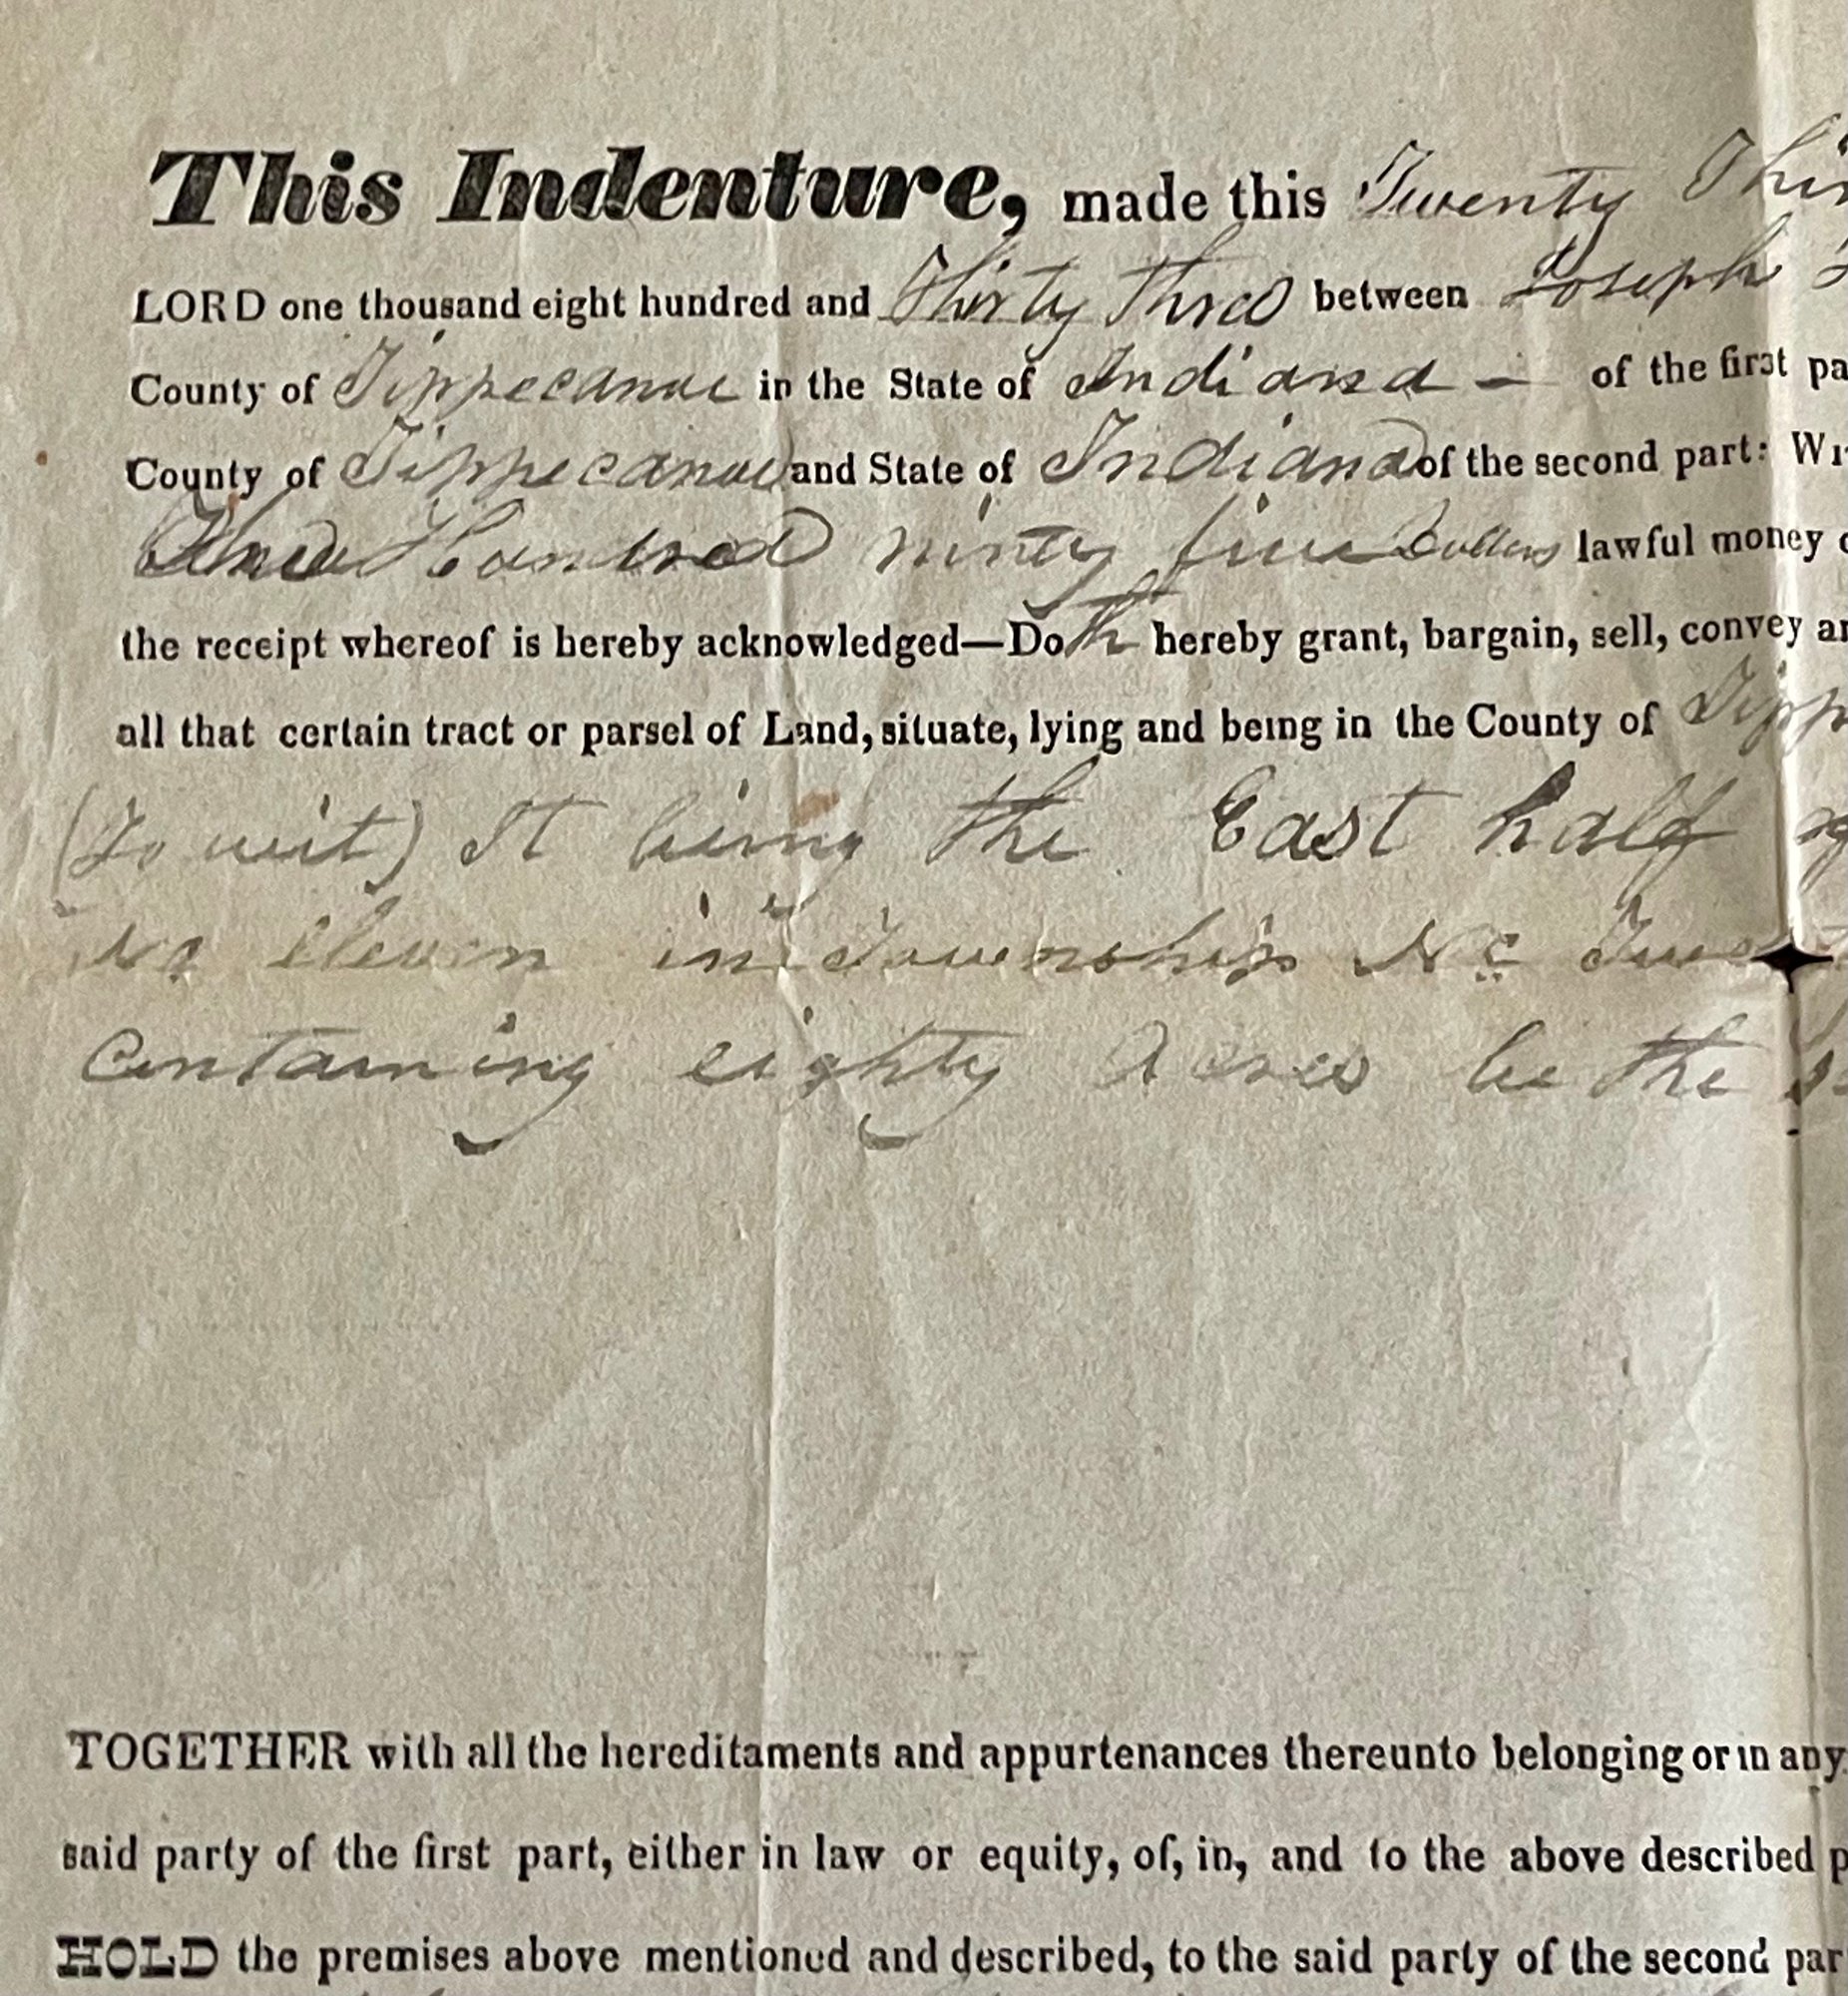 This Indenture, made this Twenty Thir
LORD one thousand eight hundred and Thirty Three between Joseph
County of Tippecanoe in the State of Indiana - of the first pa
County of Tippecanoe and State of Indiana of the second part: WI
Three Hundred ninty five Dollars lawful money o
the receipt whereof is hereby acknowledged—Doth hereby grant, bargain, sell, convey an
all that certain tract or parsel of Land, situate, lying and being in the County of Tipp
(To wit) It being the East half of
No eleven in Township No Twe
Containing eighty Acres be the s
TOGETHER with all the hereditaments and appurtenances thereunto belonging or in any
said party of the first part, either in law or equity, of, in, and to the above described p
HOLD the premises above mentioned and described, to the said party of the second par